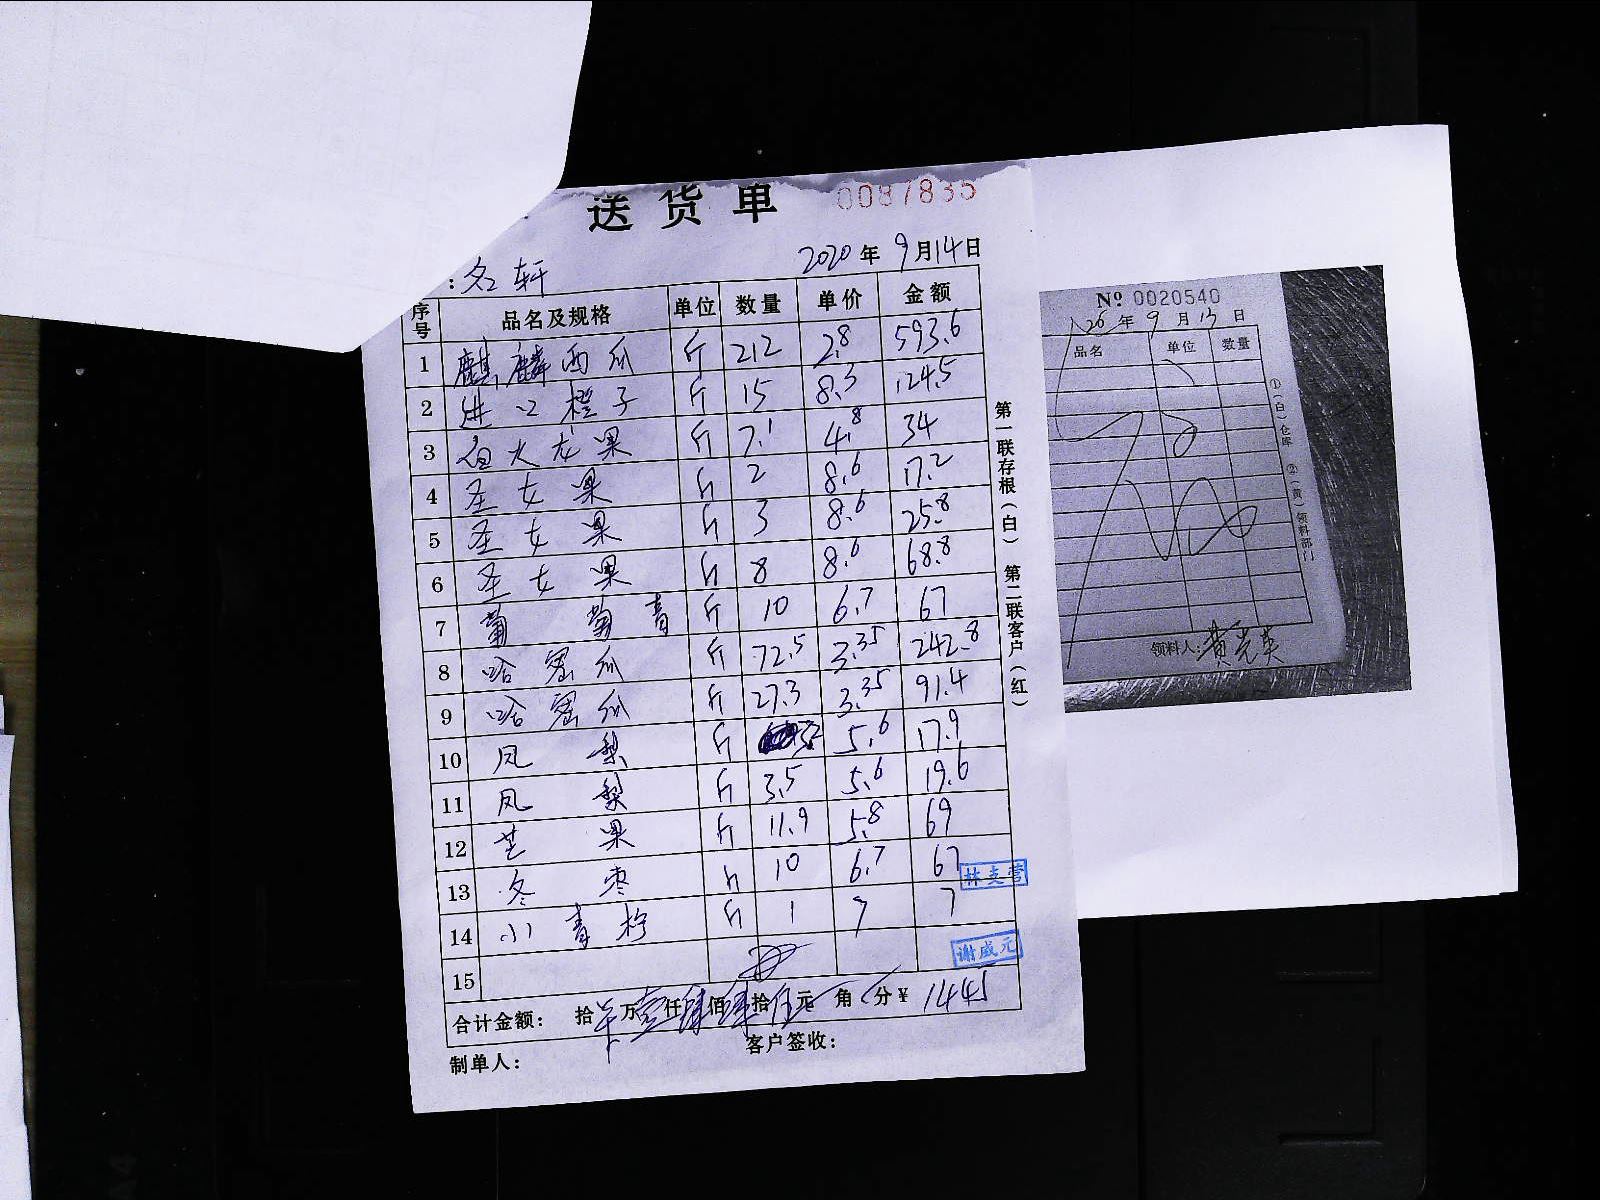 送货单 0087835
2020年9月14日
:名轩
序号 品名及规格 单位 数量 单价 金额
1 麒麟西瓜 斤 212 2.8 593.6
2 进口橙子 斤 15 8.3 124.5
3 白火龙果 斤 7.1 4.8 34
4 圣女果 斤 2 8.6 17.2
5 圣女果 斤 3 8.6 25.8
6 圣女果 斤 8 8.6 68.8
7 葡萄青 斤 10 6.7 67
8 哈密瓜 斤 72.5 3.35 242.8
9 哈密瓜 斤 27.3 3.35 91.4
10 凤梨 斤 5.6 17.9
11 凤梨 斤 3.5 5.6 19.6
12 芒果 斤 11.9 5.8 69
13 冬枣 斤 10 6.7 67
林支营
14 小青柠 斤 1 7 7
15
谢成元
合计金额: 拾 万壹仟肆佰肆拾伍元 角 分¥ 1445
制单人:
客户签收:
第一联存根(白) 第二联客户(红)
№ 0020540
年 9 月 13 日
品名 单位 数量
①(白)仓库 ②(黄)领料部门
领料人:黄光英